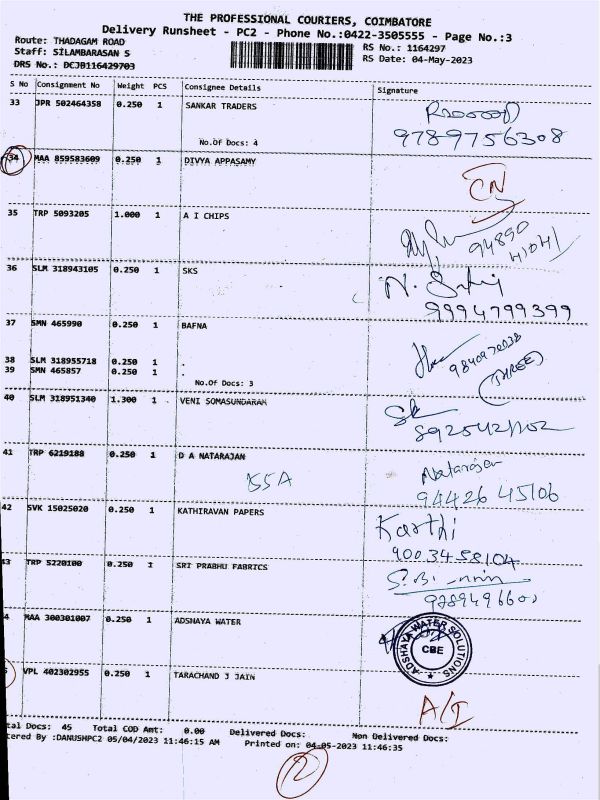 THE PROFESSIONAL COURIERS, COIMBATORE
Delivery Runsheet - PC2 - Phone No.:0422-3505555 - Page No.:3
Route: THADAGAM ROAD
RS No.: 1164297
Staff: SILAMBARASAN S
RS Date: 04-May-2023
DRS No.: DCJB116429703
S No Consignment No Weight PCS Consignee Details Signature
33 JPR 502464358 0.250 1 SANKAR TRADERS
No.Of Docs: 4
9789756308
34 MAA 859583609 0.250 1 DIVYA APPASAMY
CN
35 TRP 5093205 1.000 1 A I CHIPS
94890
36 SLM 318943105 0.250 1 SKS
9994799399
37 SMN 465990 0.250 1 BAFNA
38 SLM 318955718 0.250 1 .
39 SMN 465857 0.250 1 .
(THREE)
No.Of Docs: 3
40 SLM 318951340 1.300 1 VENI SOMASUNDARAM
41 TRP 6219188 0.250 1 D A NATARAJAN
Natarajan
55A
94426 45106
42 SVK 15025020 0.250 1 KATHIRAVAN PAPERS
Karthi
9003458104
43 TRP 5220100 0.250 1 SRI PRABHU FABRICS
4 MAA 300301007 0.250 1 ADSHAYA WATER
ADSHAYA WATER SOLUTIONS
CBE
VPL 402302955 0.250 1 TARACHAND J JAIN
A/I
tal Docs: 45 Total COD Amt: 0.00 Delivered Docs: Non Delivered Docs:
tered By :DANUSHPC2 05/04/2023 11:46:15 AM Printed on: 04-05-2023 11:46:35
2